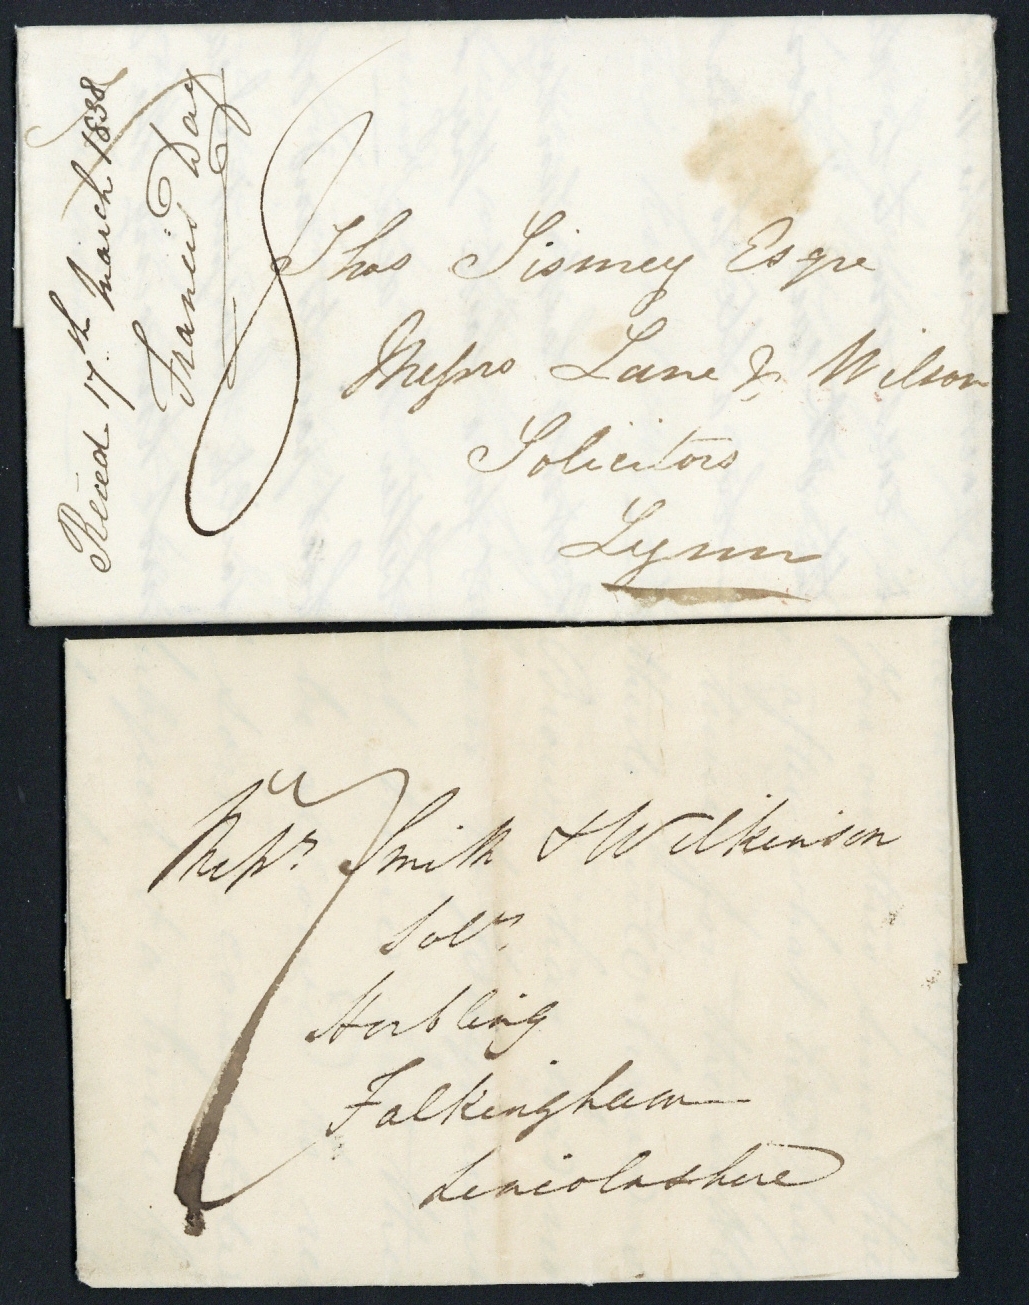 Reced 17th March 1838
Francis Day
8
Thos Sismey Esqre
Messrs Lane & Wilson
Solicitors
Lynn
7
Messrs Smith & Wilkinson
Solrs
Horbling
Falkingham
Lincolnshire